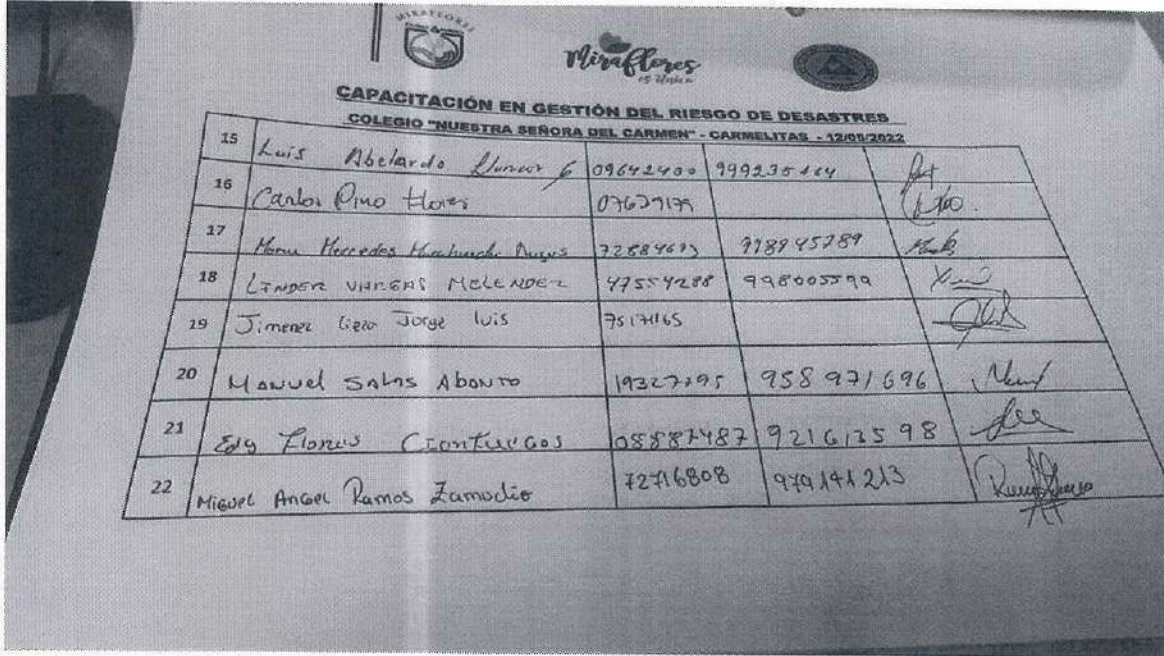 MIRAFLORES
Miraflores
es Único
CAPACITACIÓN EN GESTIÓN DEL RIESGO DE DESASTRES
COLEGIO "NUESTRA SEÑORA DEL CARMEN" - CARMELITAS - 12/05/2022
15 Luis Abelardo 09642400 999235464
16 Carlos Pino Flores
17 Mercedes 998945789
18 LINDER VARGAS MELENDEZ 47554288 998005599
19 Jimenez Jorge luis 75171165
20 Manuel Salas Abanto 19327295 958971696
21 Edy Flores Cienfuegos 08887487 921613598
22 Miguel Angel Ramos Zamudio 72716808 979141213